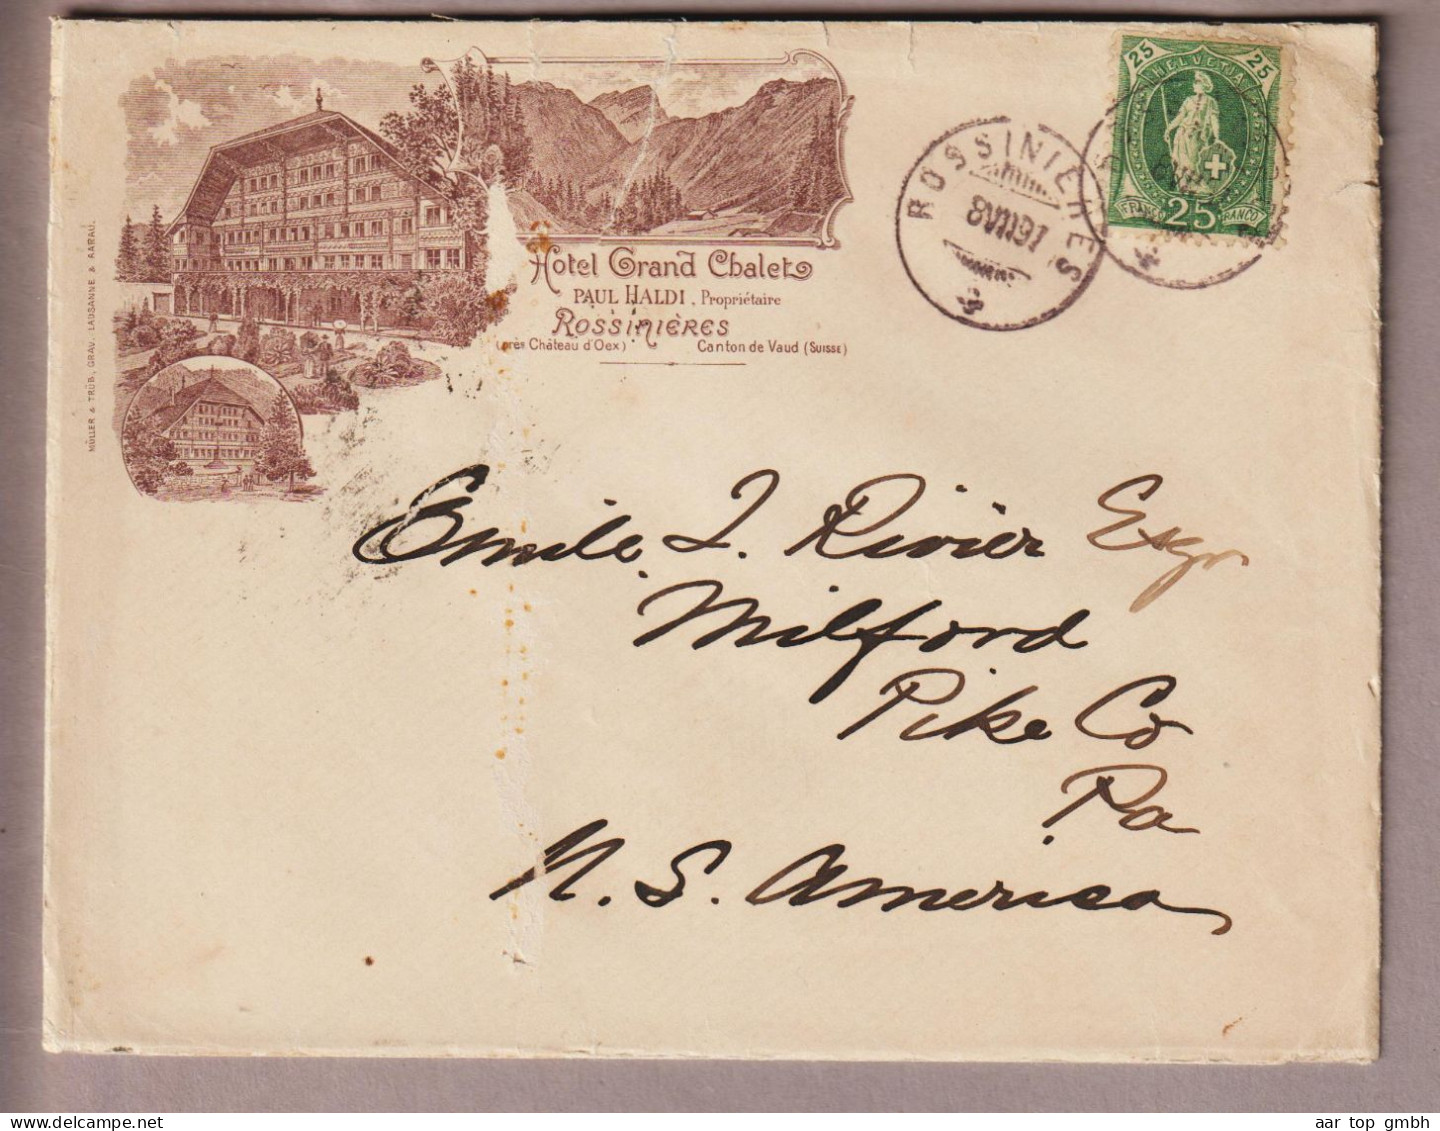 Hotel Grand Chalet
PAUL HALDI, Propriétaire
ROSSINIÈRES
(près Château d'Oex) Canton de Vaud (SUISSE)
MÜLLER & TRÜB, GRAV. LAUSANNE & AARAU.
ROSSINIÈRES
8 VII 97
25 HELVETIA 25
FRANCO 25 FRANCO
Emile J. Rivièr Esqr
Milford
Pike Co
Pa
N. S. America
aar top gmbh